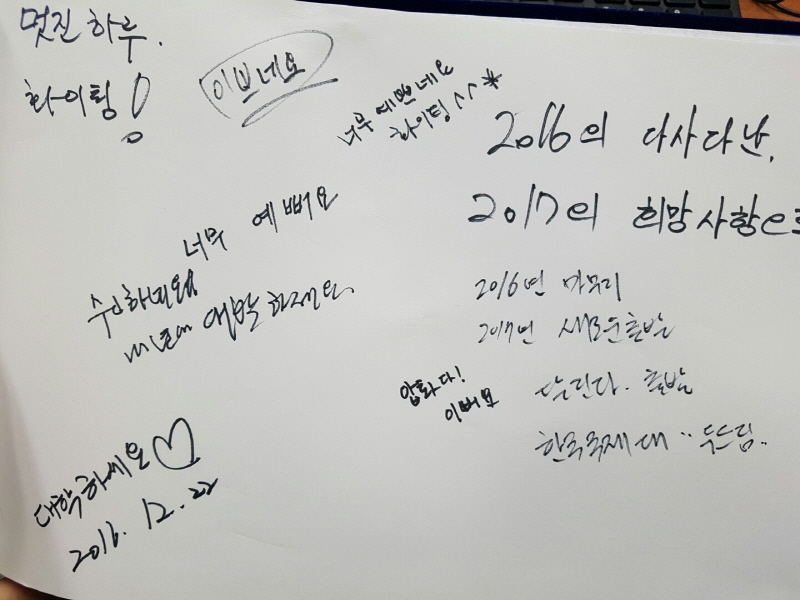 멋진 하루.
화이팅!
이쁘네요
너무 예쁘네요
화이팅 ^^*
2016의 다사다난,
2017의 희망사항으로
너무 예뻐요
2016년 마무리
2017년 새로운 출발
압화다!
이뻐요
달린다. 출발
한국국제대 " 두드림..
대학하세요♡
2016. 12. 22